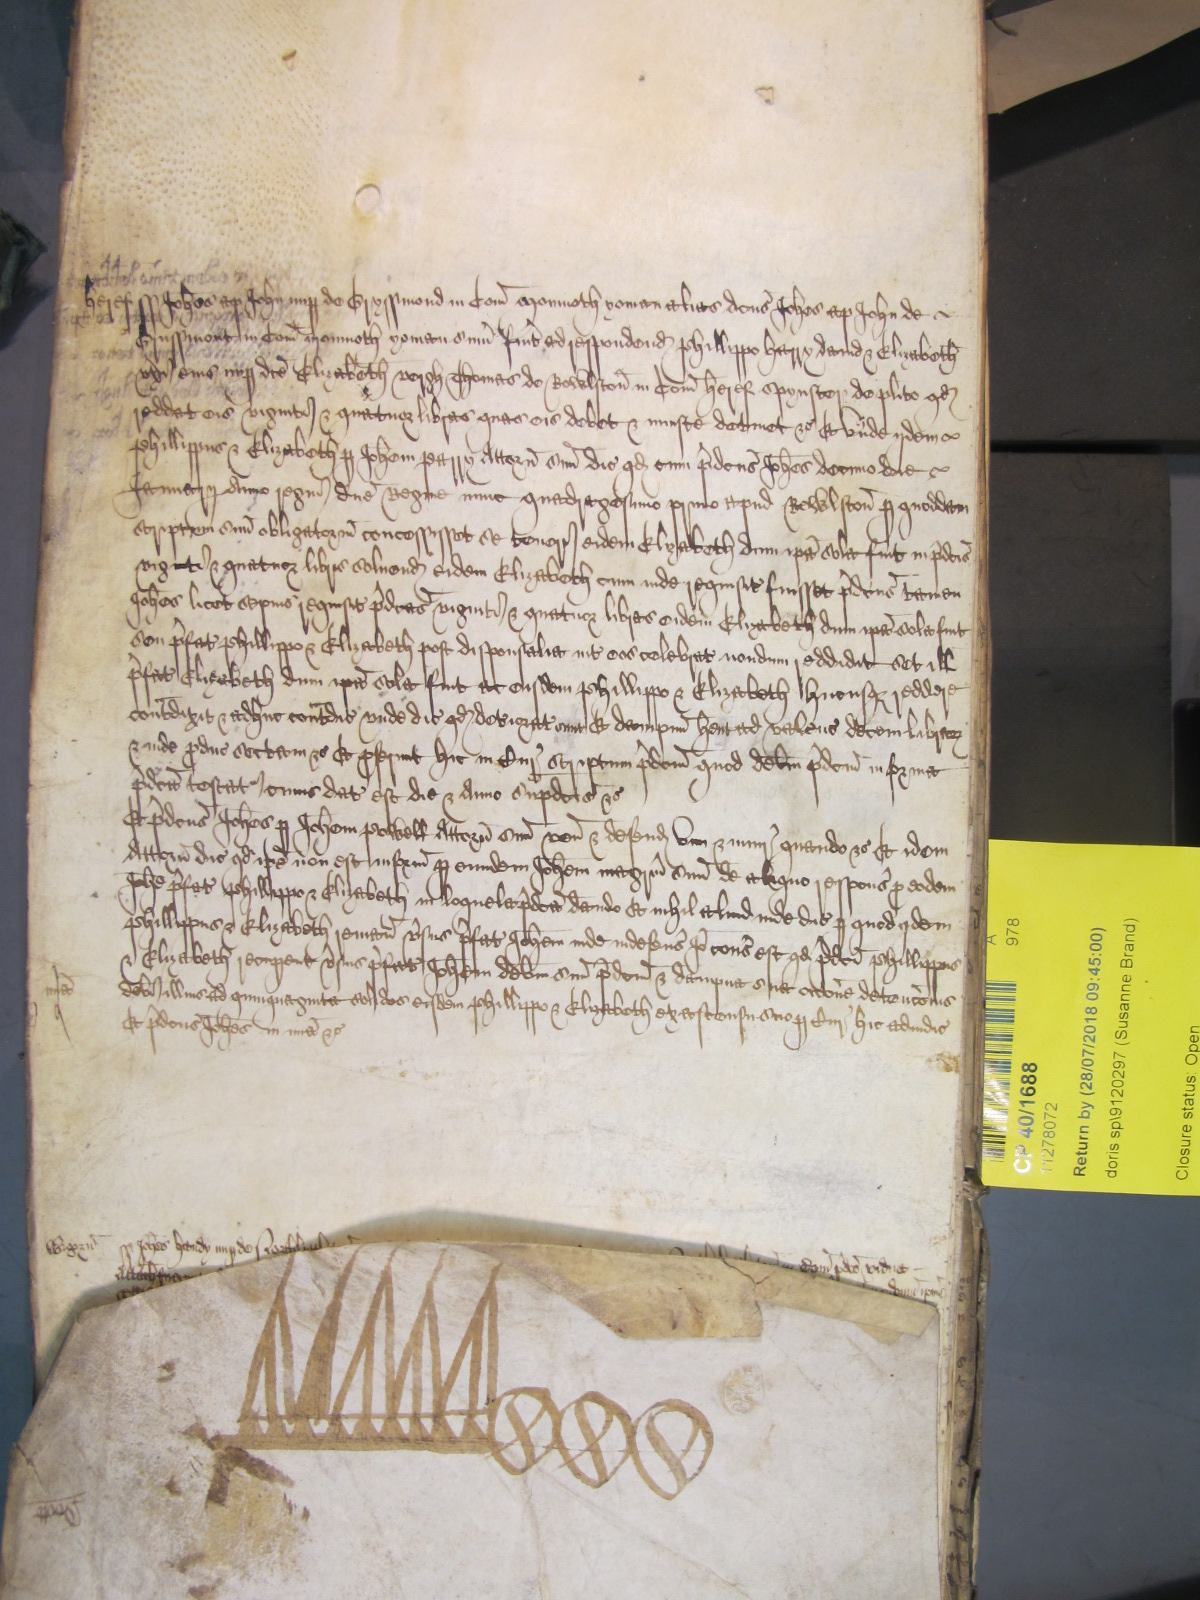 heref ss Johes ap John nup de Gryssmond in Com Monmoth yoman alias dcus Johes ap John de
Grissmont in Com Monmoth yoman sum fuit ad respondend Phillippo harry david & Elizabeth
uxi eius nup dce Elizabeth vergh Thomas de Rowlston in Com heref Spynster de plito qd
reddat eis viginti & quatuor libras quas eis debet & iniuste detinet &c Et unde ijdem
Phillippus & Elizabeth p Johem Parry Attorn suu dic qd cum pdcus Johes decimo die
Januarij Anno regni dne Regine nunc quadragesimo primo apud Rowlston p quoddam
scriptum suu obligatoriu concessisset se teneri eidem Elizabeth dum ipa sola fuit in pdcis
viginti & quatuor libris solvend eidem Elizabeth cum inde requisit fuisset pdcus tamen
Johes licet sepius requisit pdcas viginti & quatuor libras eidem Elizabeth dum ipa sola fuit
seu pfat Phillippo & Elizabeth post disponsalia int eos celebrat nondum reddidit set ill
pfat Elizabeth dum ipa sola fuit ac eisdem Phillippo & Elizabeth hucusq reddere
contradixit & adhuc contradic unde dic qd deteriorat sunt & dampnu hent ad valenc decem librar
& inde pduc sectam &c Et pferunt hic in Cur scriptum pdcm quod debm pdcm in forma
pdca testat cuius dat est die & Anno supdcis &c
Et pdcus Johes p Johem Powell Attorn suu ven & defend vim & iniur quando &c Et idem
Attorn dic qd ipe non est inform p eundem Johem magrm suu de aliquo respons p eodem
Johe pfat Phillippo & Elizabeth in loquela pdca dando Et nihil aliud inde dic p quod ijdem
Phillippus & Elizabeth remanent vsus pfat Johem inde indefens Io cons est qd pdci Phillippus
& Elizabeth recuperent vsus pfat Johem debm suu pdcm & dampna sua occone detencois
debi illius ad quinquaginta solidos eisdem Phillippo & Elizabeth ex assensu suo p Cur hic adiudic
Et pdcus Johes in mia &c
mia
Wigorn ss Johes handy nup de
Com pdco vidue
CP 40/1688
11278072
A
978
Return by (28/07/2018 09:45:00)
doris sp\9120297 (Susanne Brand)
Closure status: Open